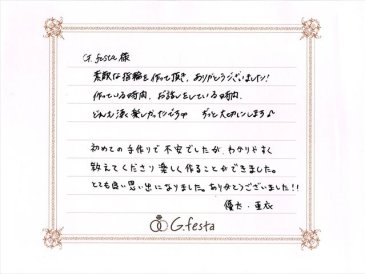 G.festa 様
素敵な指輪を作って頂き、ありがとうございました!
作っている時間、お話しをしている時間、
どれも凄く楽しかったです ずっと大切にします♪
初めての手作りで不安でしたが、わかりやすく
教えてくださり楽しく作ることができました。
とても良い思い出になりました。ありがとうございました!!
優
G.festa